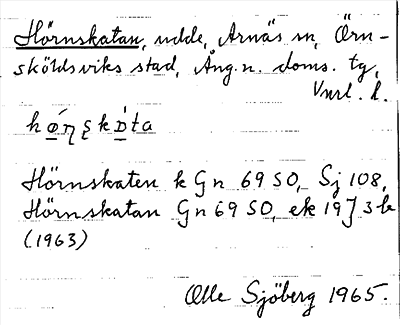 Hörnskatan, udde, Arnäs sn, Örn-
sköldsviks stad, Ång. n. doms. tg,
Vnrl. l.
Hörnskaten k Gn 69 SO, Sj 108,
Hörnskatan Gn 69 SO, ek 19J 3b
(1963)
Olle Sjöberg 1965.